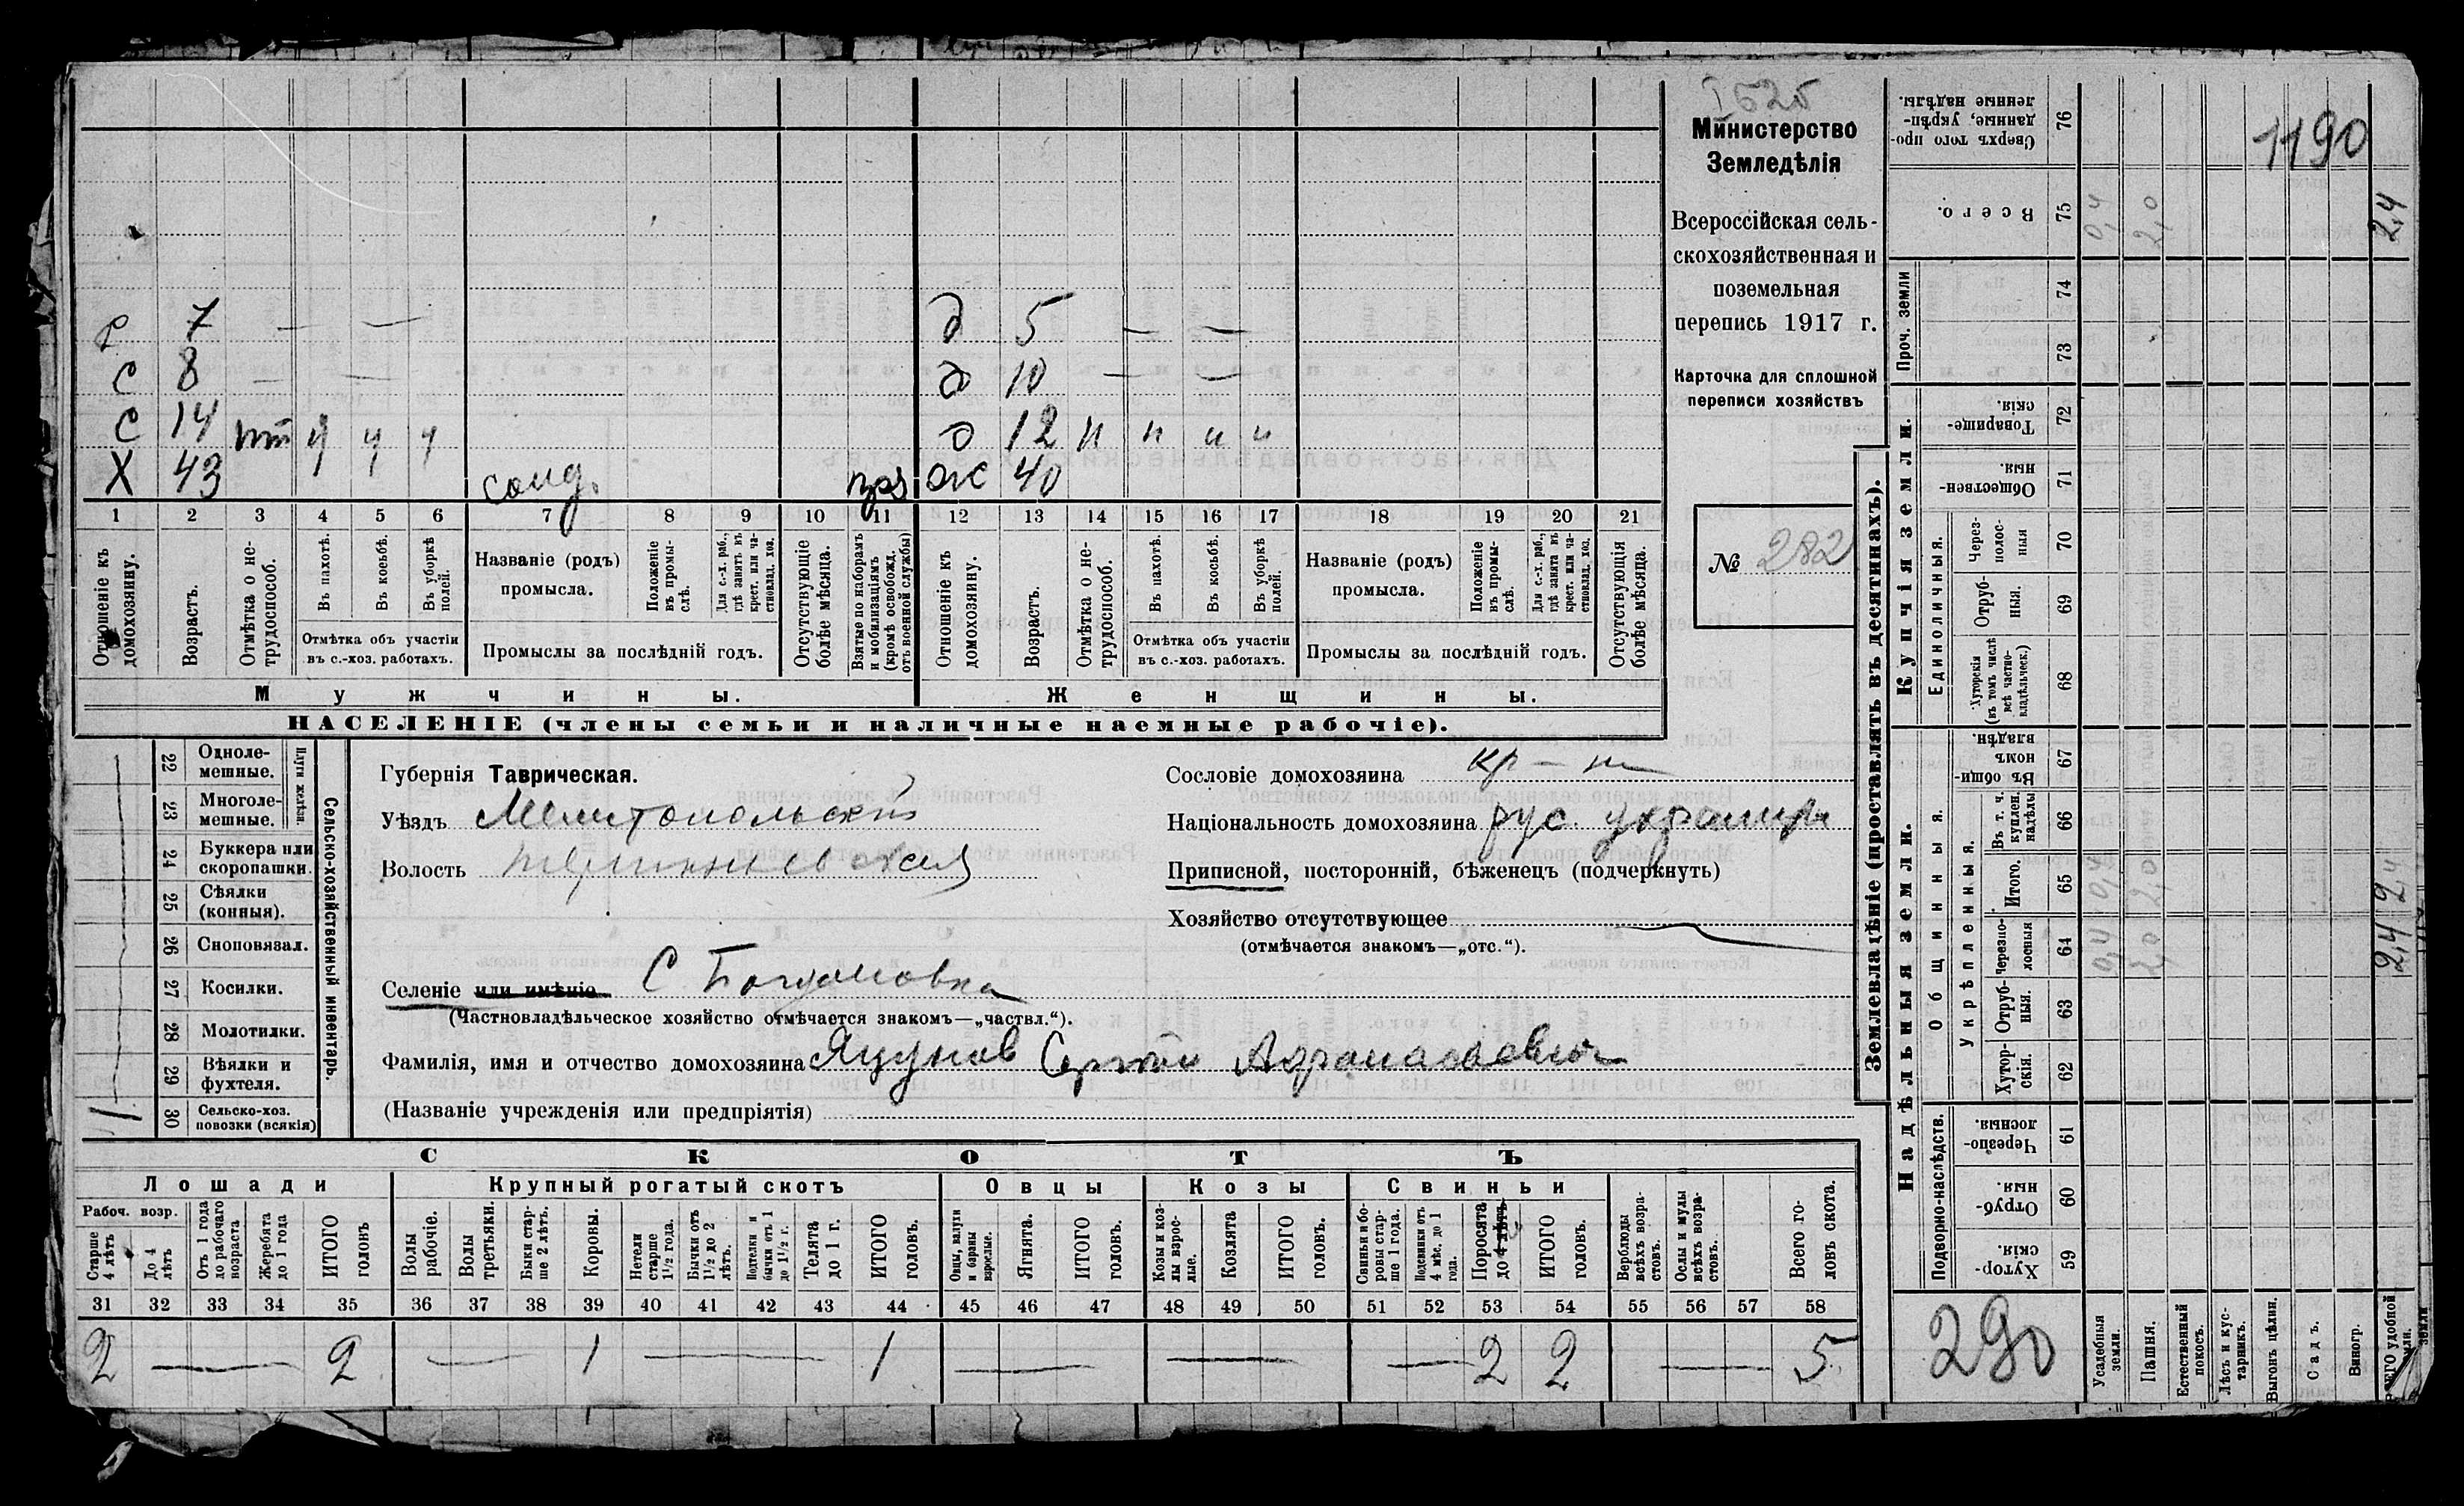 1190
Министерство
Земледѣлія
Всероссійская сель-
скохозяйственная и
поземельная
перепись 1917 г.
Карточка для сплошной
переписи хозяйствъ
№ 282
7 — — д 5 — —
С 8 — — д 10 — —
С 14 д 12 н н н н
Х 43 ж 40
1 2 3 4 5 6 7 8 9 10 11 12 13 14 15 16 17 18 19 20 21
Отношеніе къ домохозяину.
Возрастъ.
Отмѣтка о не-трудоспособ.
Въ пахотѣ.
Въ косьбѣ.
Въ уборкѣ полей.
Отмѣтка объ участіи
въ с.-хоз. работахъ.
Названіе (родъ)
промысла.
Положеніе въ промы-слѣ.
Для с.-х. раб., гдѣ занятъ въ крест. или ча-стновлад. хоз.
Промыслы за послѣдній годъ.
Отсутствующіе болѣе мѣсяца.
Взятые по наборамъ и мобилизаціямъ (кромѣ освобожд. отъ военной службы)
Отношеніе къ домохозяину.
Возрастъ.
Отмѣтка о не-трудоспособ.
Въ пахотѣ.
Въ косьбѣ.
Въ уборкѣ полей.
Отмѣтка объ участіи
въ с.-хоз. работахъ.
Названіе (родъ)
промысла.
Положеніе въ промы-слѣ.
Для с.-х. раб., гдѣ занята въ крест. или ча-стновлад. хоз.
Промыслы за послѣдній годъ.
Отсутствующія болѣе мѣсяца.
Мужчины. Женщины.
НАСЕЛЕНІЕ (члены семьи и наличные наемные рабочіе).
Сельско-хозяйственный инвентарь.
Плуги желѣзн.
22 Одноле-мешные.
23 Многоле-мешные.
24 Буккера или скоропашки.
25 Сѣялки (конныя).
26 Сноповязал.
27 Косилки.
28 Молотилки.
29 Вѣялки и фухтеля.
30 Сельско-хоз. повозки (всякія) 1
Губернія Таврическая.
Уѣздъ Мелитопольскій
Волость
Селеніе или имѣніе С Богдановка
(Частновладѣльческое хозяйство отмѣчается знакомъ—„частвл.“).
Фамилія, имя и отчество домохозяина Яцунов Сергѣй
(Названіе учрежденія или предпріятія)
Сословіе домохозяина кр-н
Національность домохозяина рус. украин
Приписной, посторонній, бѣженецъ (подчеркнуть)
Хозяйство отсутствующее
(отмѣчается знакомъ—„отс.“).
СКОТЪ
Лошади Крупный рогатый скотъ Овцы Козы Свиньи
Рабоч. возр.
Старше 4 лѣтъ
До 4 лѣтъ
Отъ 1 года до рабочаго возраста
Жеребята до 1 года
ИТОГО головъ
Волы рабочіе.
Волы третьяки.
Быки стар-ше 2 лѣтъ.
Коровы.
Нетели старше 1½ года.
Бычки отъ 1½ до 2 лѣтъ.
Подтелки и бычки отъ 1 до 1½ г.
Телята до 1 г.
ИТОГО головъ.
Овцы, валухи и бараны взрослые.
Ягнята.
ИТОГО головъ.
Козы и коз-лы взрос-лые.
Козлята
ИТОГО головъ.
Свиньи и бо-ровы стар-ше 1 года.
Подсвинки отъ 4 мѣс. до 1 года.
Поросята до 4 лѣтъ
ИТОГО головъ.
Верблюды всѣхъ возра-стовъ.
Ослы и мулы всѣхъ возра-стовъ.
Всего го-ловъ скота.
31 32 33 34 35 36 37 38 39 40 41 42 43 44 45 46 47 48 49 50 51 52 53 54 55 56 57 58
2 — 2 — 1 — 1 — — — 2 2 — 5
Землевладѣніе (проставлять въ десятинахъ).
Купчія земли.
Надѣльныя земли.
76 Сверхъ того про-данные, укрѣп-ленные надѣлы.
75 Всего. 0,4 2,0 2,4
Проч. земли
74
73
72 Товарище-скія.
71 Обществен-ныя.
Единоличныя.
70 Через-полос-ныя
69 Отруб-ныя.
68 Хуторскія (въ томъ числѣ всѣ частно-владѣльческ.)
Общинныя.
67 Въ общи-номъ владѣн.
Укрѣпленныя.
66 Въ т. ч. куплен. надѣлы
65 Итого. 0,4 2,0 2,4
64 Черезпо-лосныя 0,4 2,0 2,4
63 Отруб-ныя.
62 Хутор-скія.
Подворно-наслѣдств.
61 Черезпо-лосныя.
60 Отруб-ныя.
59 Хутор-скія.
290
Усадебныя земли.
Пашня.
Естественный покосъ.
Лѣсъ и кус-тарникъ.
Выгонъ цѣлин.
Садъ.
Виногр.
ВСЕГО удобной земли.